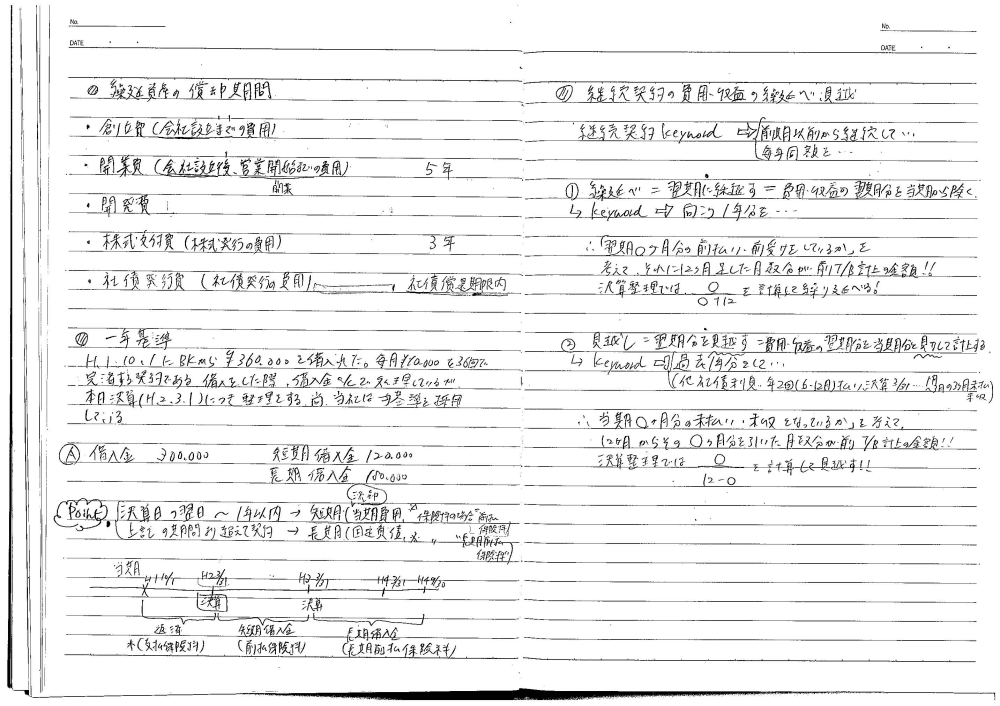 No.
DATE ・ ・
◎ 繰延資産の償却期間
・創立費 (会社設立までの費用)
・開業費 (会社設立後、営業開始までの費用) 5年
開業
・開発費
・株式交付費 (株式発行の費用) 3年
・社債発行費 (社債発行の費用) 社債償還期限内
◎ 一年基準
H.1.10.1にBKから¥360,000を借入れた。毎月¥10,000を36回で
完済する契約である 借入をした際、借入金 処理しているが
本日決算(H.2.3.1)につき整理をする。尚、当社は 基準を採用
している
Ⓐ 借入金 300,000 短期借入金 120,000
長期借入金 180,000
決却
Point 決算日の翌日〜1年以内 → 短期(当期費用, ※保険料の場合"前払保険料")
上記の期間を超えて契約 → 長期(固定負債, ※ 〃 "長期前払保険料")
当期
H1 10/1 H2 3/31 H3 3/31 H4 3/31 H4 9/30
決算 決算
返済 短期借入金 長期借入金
(支払保険料) (前払保険料) (長期前払保険料)
No.
DATE ・ ・
継続契約の費用・収益の繰延べ 見越
継続契約 keyword ⇨ 前期以前から継続して…
毎年同額を…
① 繰延べ = 翌期に繰越す = 費用・収益の翌期分を当期から除く
↳ keyword ⇨ 向こう1年分を…
∴「翌期〇ヶ月分の前払い・前受けをしているか」を
考えて、それに12ヶ月足した月数分が前T/B計上の金額!!
決算整理では 〇/〇+12 を計算して繰りのべる!
② 見越し = 翌期分を見越す = 費用・収益の翌期分を当期分と見なして計上する
↳ keyword ⇨ 過去1年分として…
(他社債利息 年2回(6・12月)払い, 決算3/31… 3ヶ月未払 未収
∴ 当期〇ヶ月分の未払い・未収となっているか」と考えて、
12ヶ月からその〇ヶ月分を引いた月数分が前T/B計上の金額!!
決算整理では 〇/12-〇 を計算して見越す!!